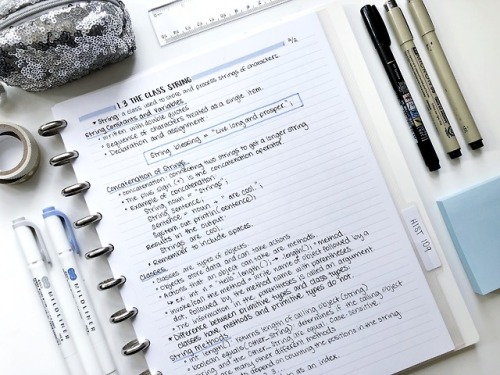 1.3 THE CLASS STRING
2/2
• String: a class used to store and process strings of characters
String Constants and Variables
• Written with double quotes
• Sequence of characters treated as a single item.
• Declaration and assignment
String blessing = "Live long and prosper.";
Concatenation of Strings
• Concatenation: connecting two strings to get a longer string
• The plus sign (+) is the concatenation operator
• Example of concatenation:
String noun = "Strings";
String sentence;
sentence = noun + " are cool.";
System.out.println(sentence);
Results in the output:
Strings are cool.
• Remember to include spaces.
Classes
• Classes are types of objects.
• Objects store data and can take actions
• Actions that an object can take are methods.
length();
• Invoke/call the method = write name of object followed by a
dot, followed by the method name with parentheses
• The information in the parentheses is called an argument
• Difference between primitive types and class types:
classes have methods and primitive types do not
String Methods
• int length() returns length of calling object (string)
• boolean equals(other_string) determines if the calling object
string and the other_string are equal. Case-sensitive.
many other different methods
depend on counting the positions in the string
as an index.
HIST 109
MILDLINER
MILDLINER